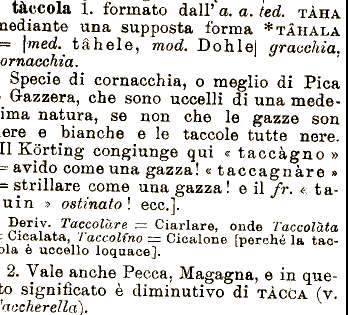 tàccola 1. formato dall' a. a. ted. TÀHA
mediante una supposta forma *TÂHALA
= [med. tâhele, mod. Dohle] gracchia,
cornacchia.
Specie di cornacchia, o meglio di Pica
Gazzera, che sono uccelli di una mede-
ima natura, se non che le gazze son
ere e bianche e le taccole tutte nere.
[Il Körting congiunge qui « taccàgno »
= avido come una gazza! « taccagnàre »
= strillare come una gazza! e il fr. « ta-
uin » ostinato! ecc.].
Deriv. Taccolàre = Ciarlare, onde Taccolàta
= Cicalata, Taccolíno = Cicalone [perché la tac-
ola è uccello loquace].
2. Vale anche Pecca, Magagna, e in que-
to significato è diminutivo di TÀCCA (v.
Taccherella).